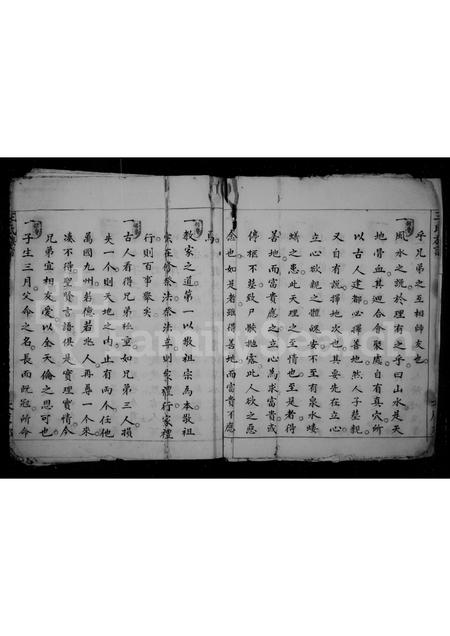 乎兄弟之互相師友也
一風水之說於理有之乎曰山水是天
地骨血其迴合聚處自有真穴所
以古人建都必擇善地然人子葬親
又自有說擇地次也其要先在立心
立心欲親之體魄安不至有泉水螻
蟻之患此天理之人情也至是者得
善地而富貴應之立心為求富貴或
停柩不葬致尸骸抛露此人欲之惡
念也如是者雖得善地而富貴不應
焉
一教家之道第一以敬祖宗為本敬祖
宗在修祭法祭法卒則祭禮行家禮
行則百事舉矣
一古人看得兄弟極重如兄弟三人損
失一个則天地之內止有兩个任他
萬國九州若億若兆人再尋一个來
湊不得聖賢言語俱是實理實情今
兄弟宜相友愛以全天倫之恩可也
一子生三月父命之名長而既冠所命